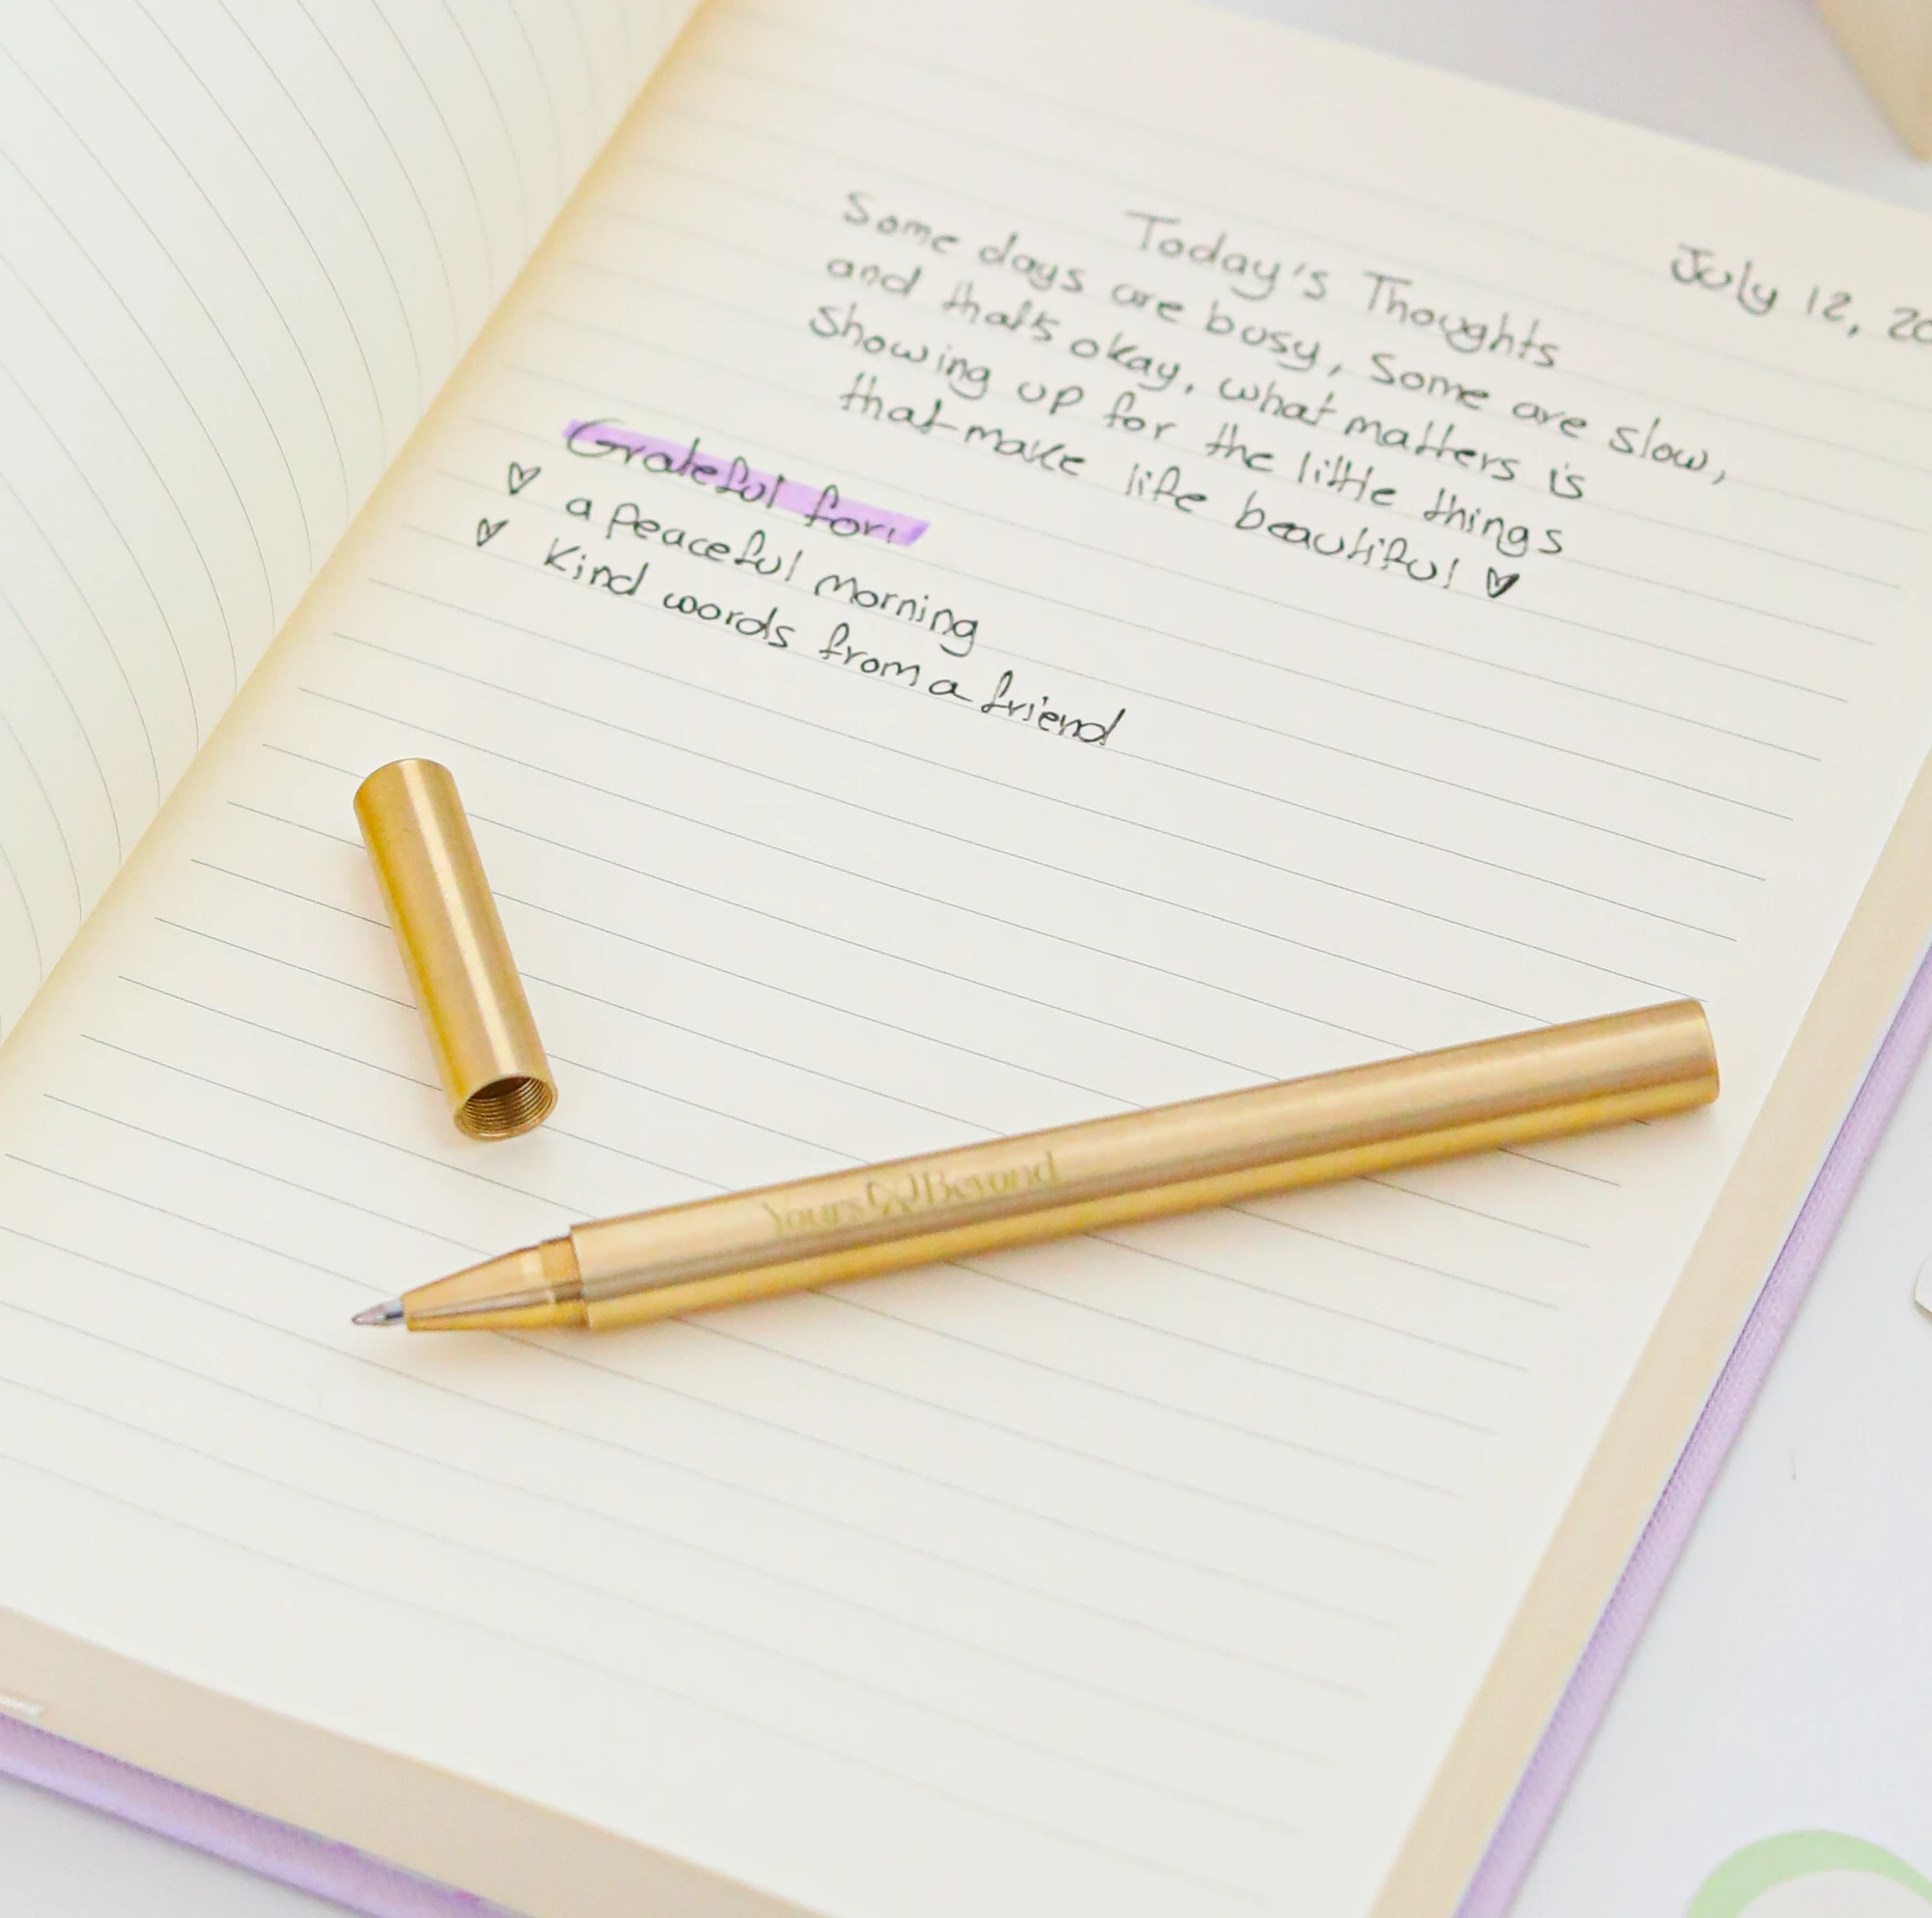 July 12, 20
Today's Thoughts
Some days are busy, Some are slow,
and that's okay, what matters is
Showing up for the little things
that make life beautiful
Grateful for:
a peaceful morning
Kind words from a friend
Yours Beyond